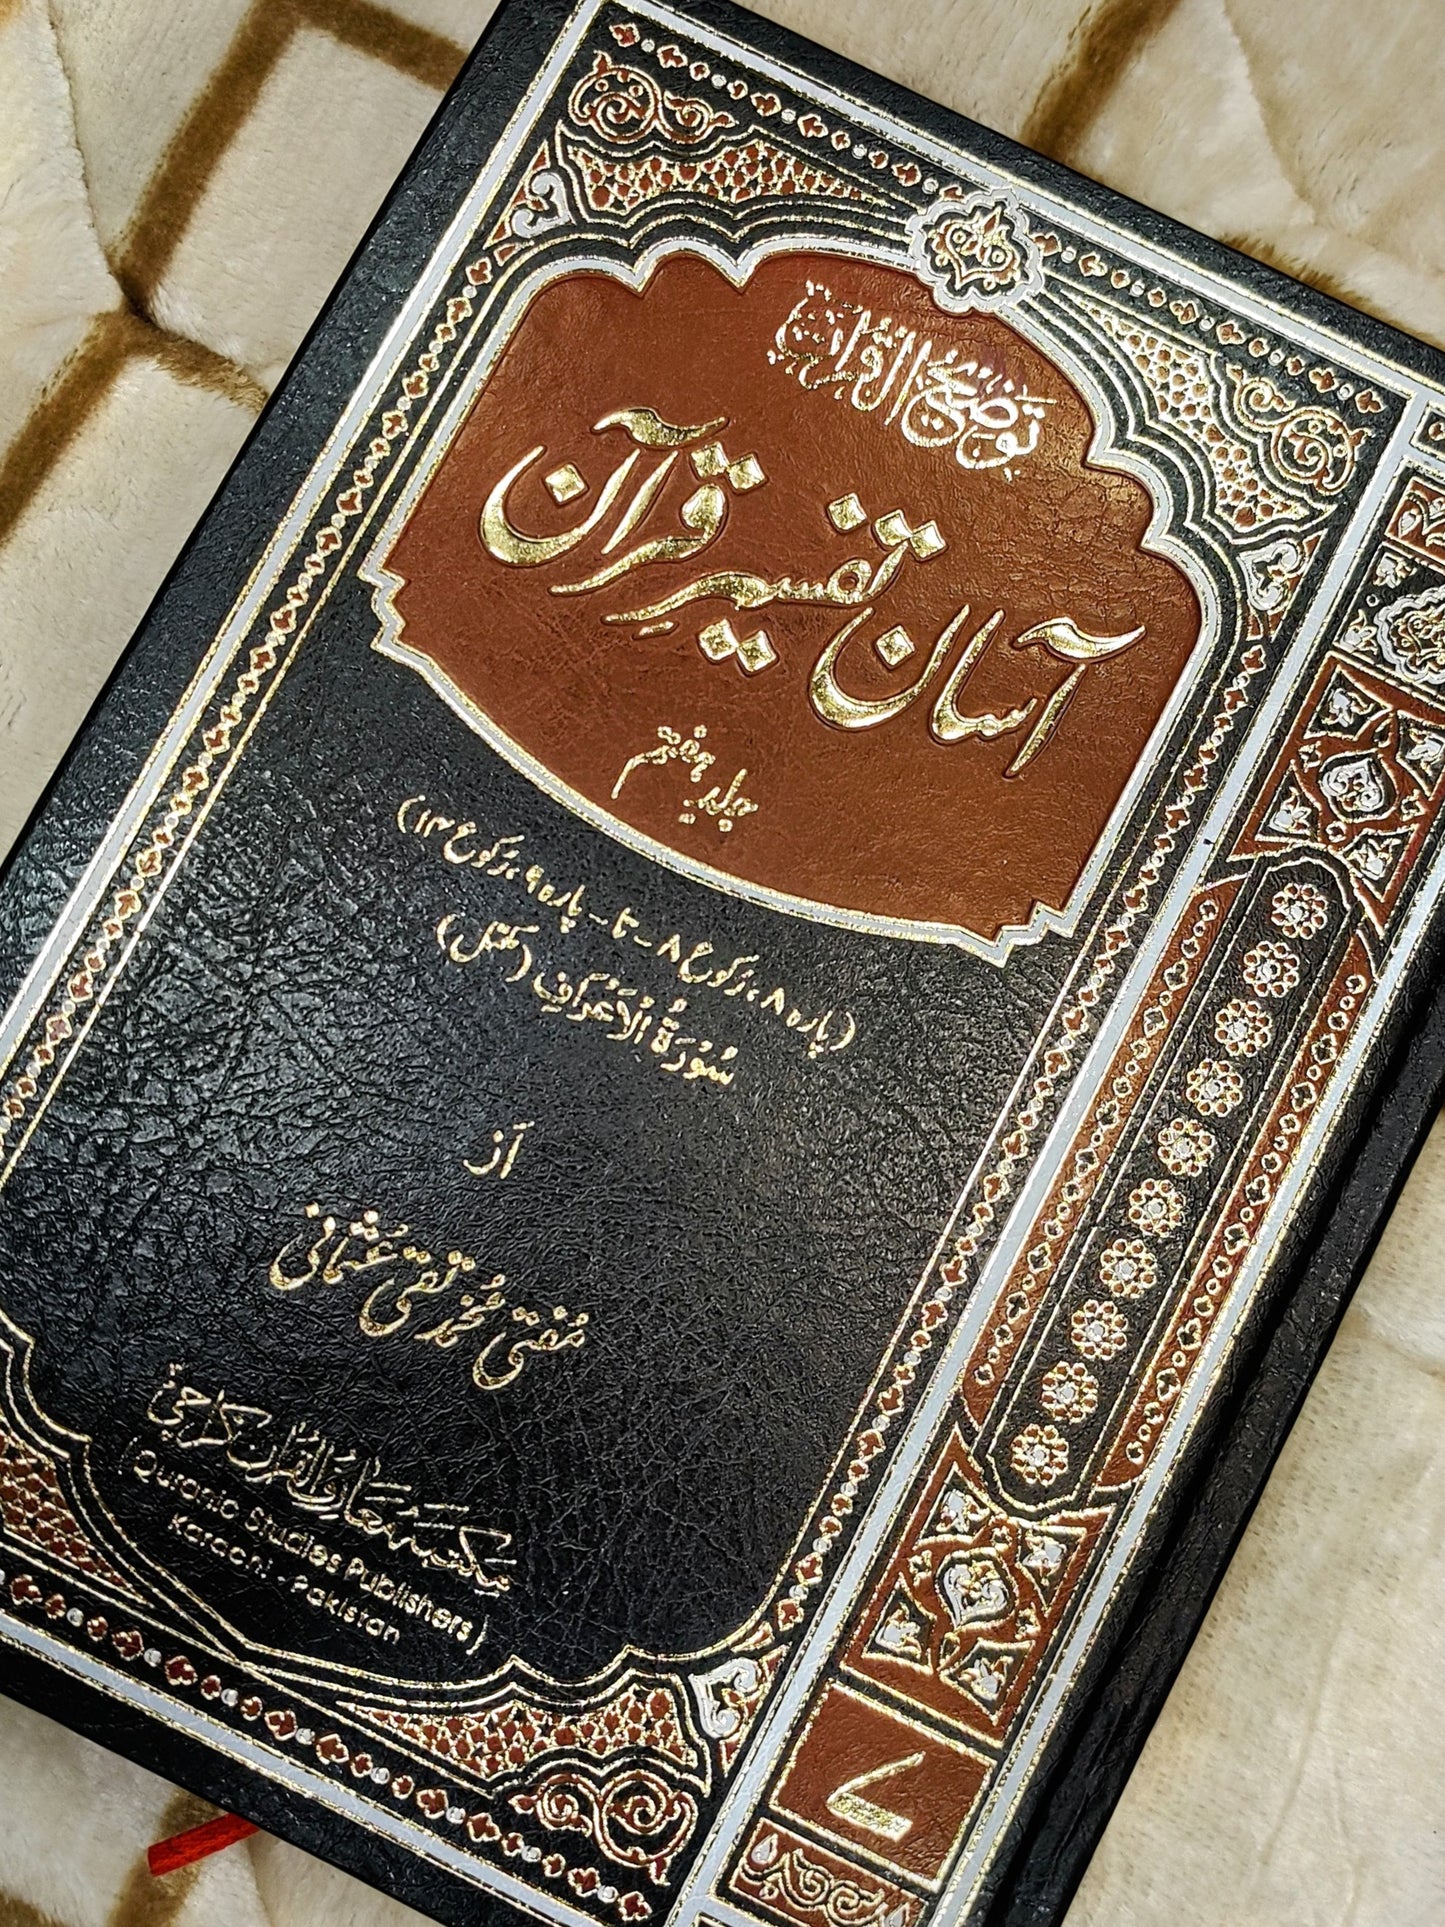 توضیح القرآن
آسان تفسیرِ قرآن
جلد ہفتم
(پارہ ۸، رکوع ۸ - تا - پارہ ۹، رکوع ۱۴)
سُوْرَۃُ الْاَعْرَاف (مکمّل)
اَز
مُفتی مُحمّد تقی عُثمانی
مکتبہ معارف القرآن کراچی
(Quranic Studies Publishers)
Karachi, Pakistan
۷